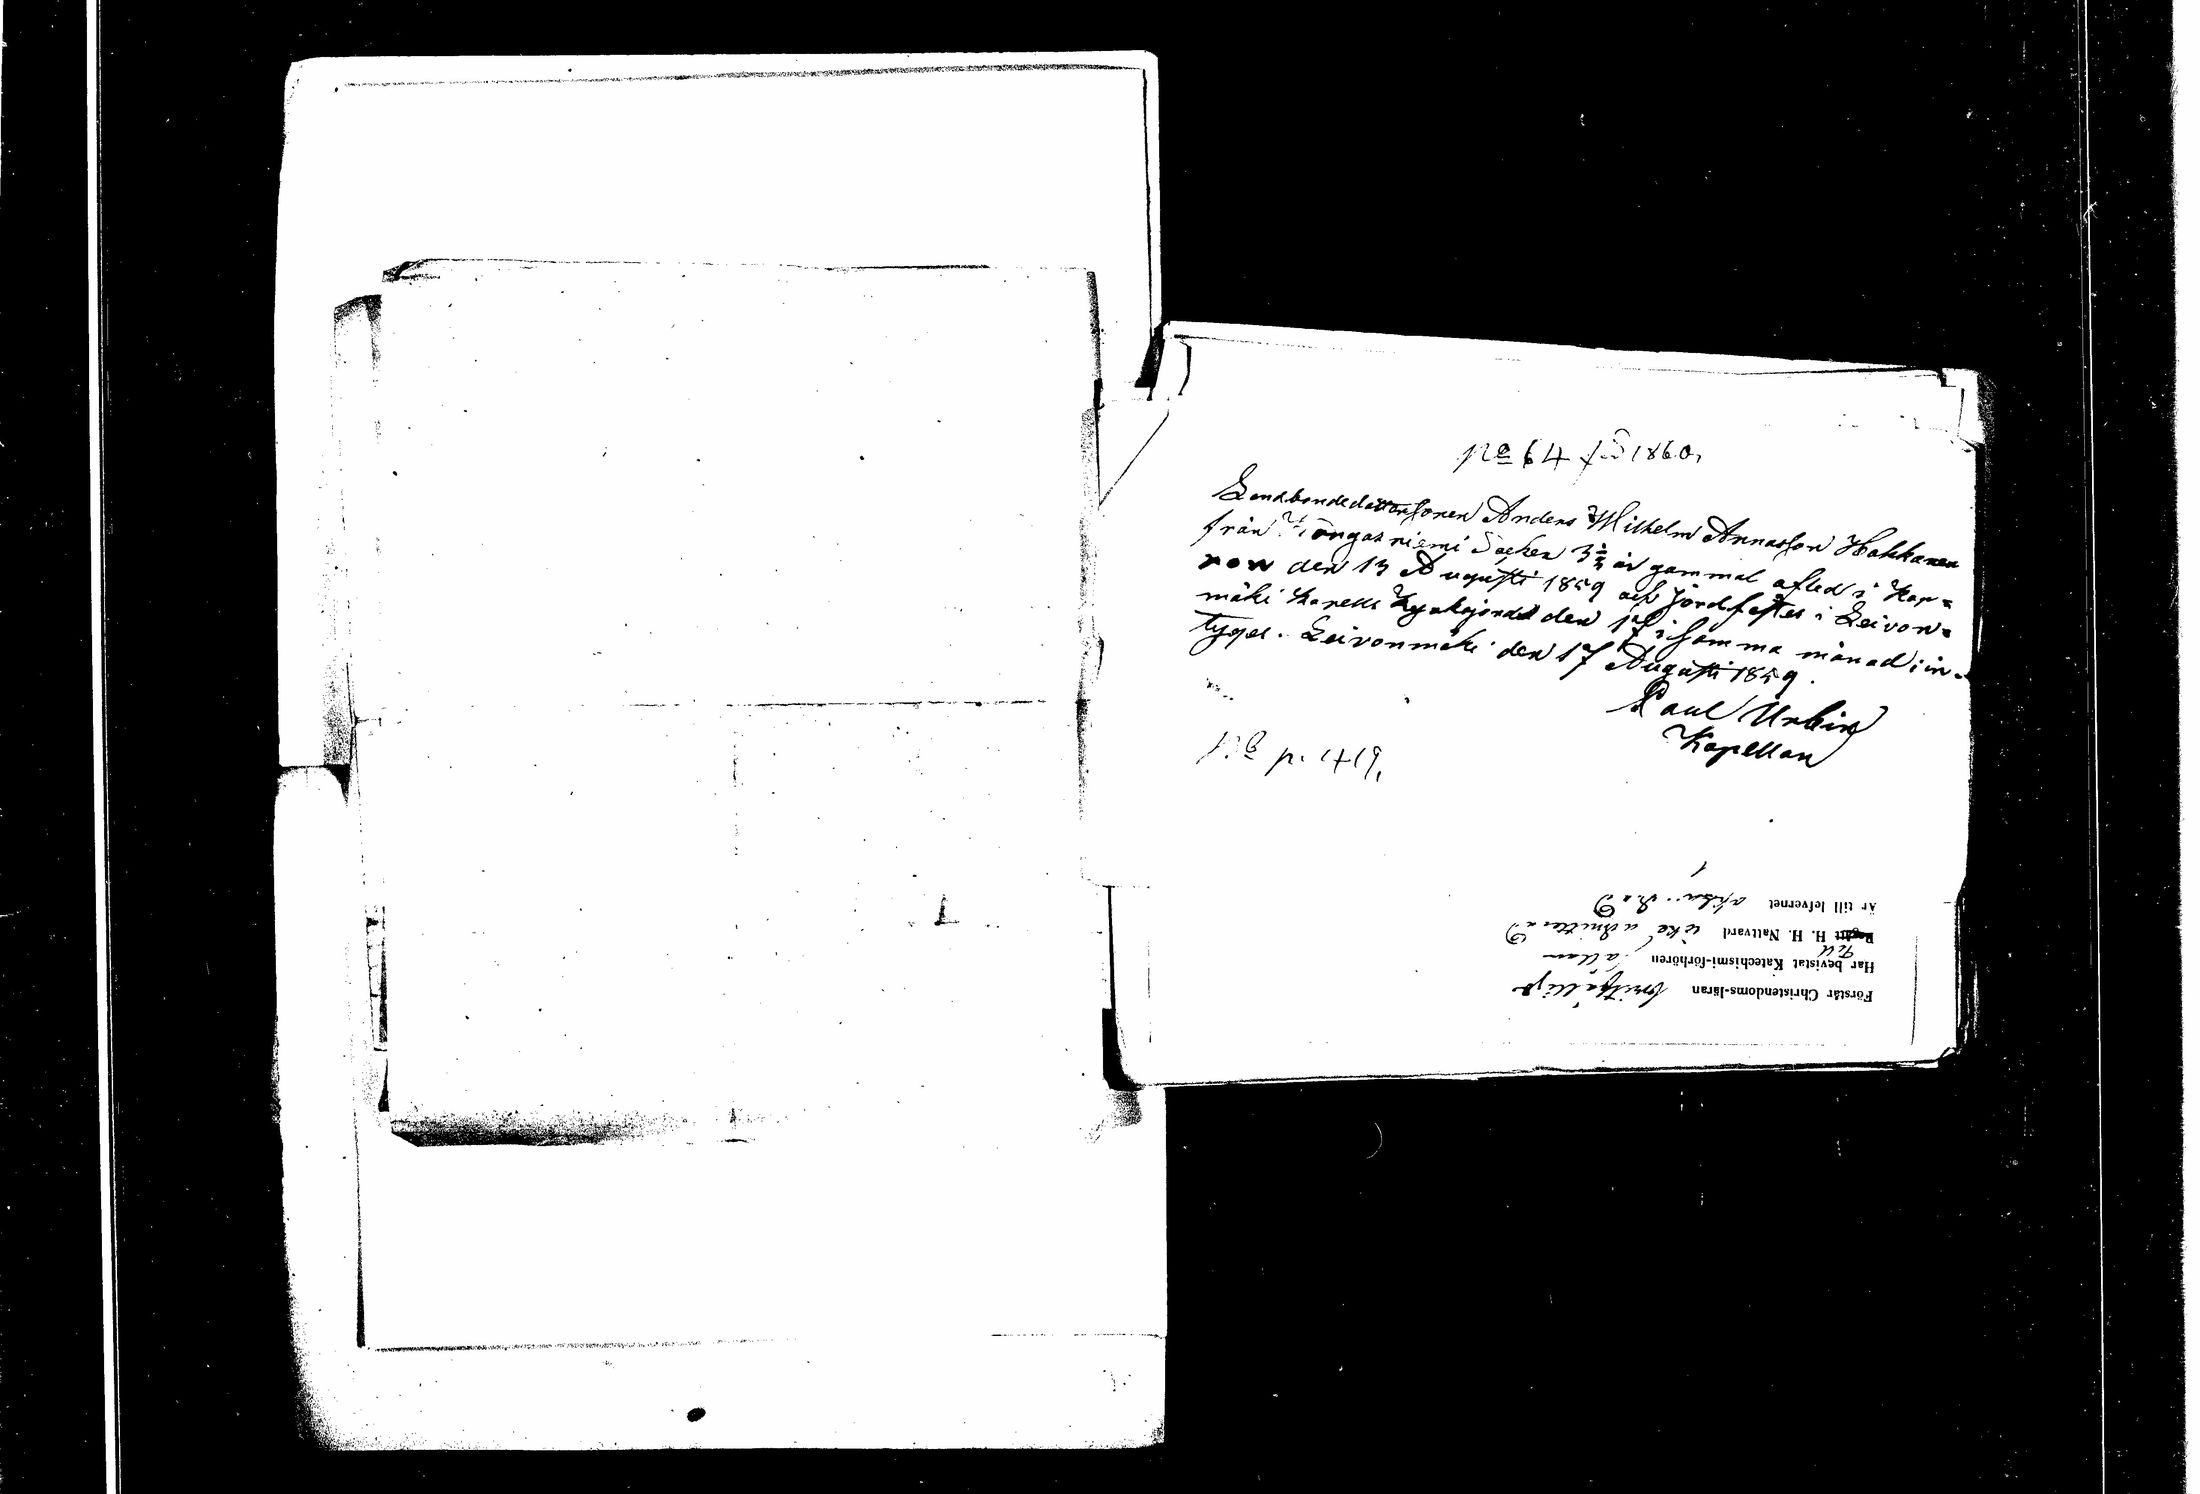 No 64 för 1860.
Landbondedottersonen Anders Wilhelm Annasson Hokkanen
från Kangasniemi Socken 3½ år gammal afled i Kar=
von den 13 Augusti 1859 och jordfästes i Leivon=
mäki Kapells Kyrkogård den 17 i samma månad; in=
tygas. Leivonmäki den 17 Augusti 1859.
Paul Urbin
Kapellan
p. 1419.
Förstår Christendoms-läran
Har bevistat Katechismi-förhören
Till
Begått H. H. Nattvard icke admitterad
Är till lefvernet